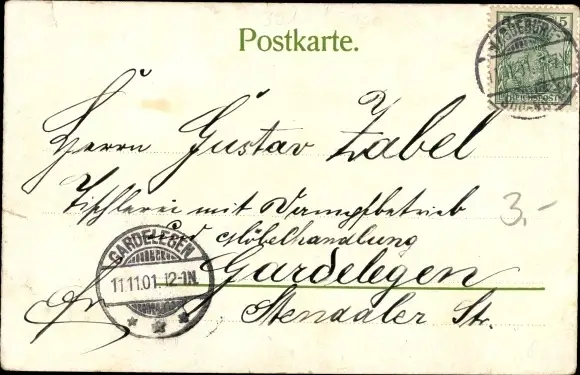 Postkarte.
MAGDEBURG
5
REICHSPOST
Herrn Gustav Zabel
Tischlerei mit Dampfbetrieb
und Möbelhandlung
3.-
GARDELEGEN
11.11.01. 12-1N.
Gardelegen
Stendaler Str.